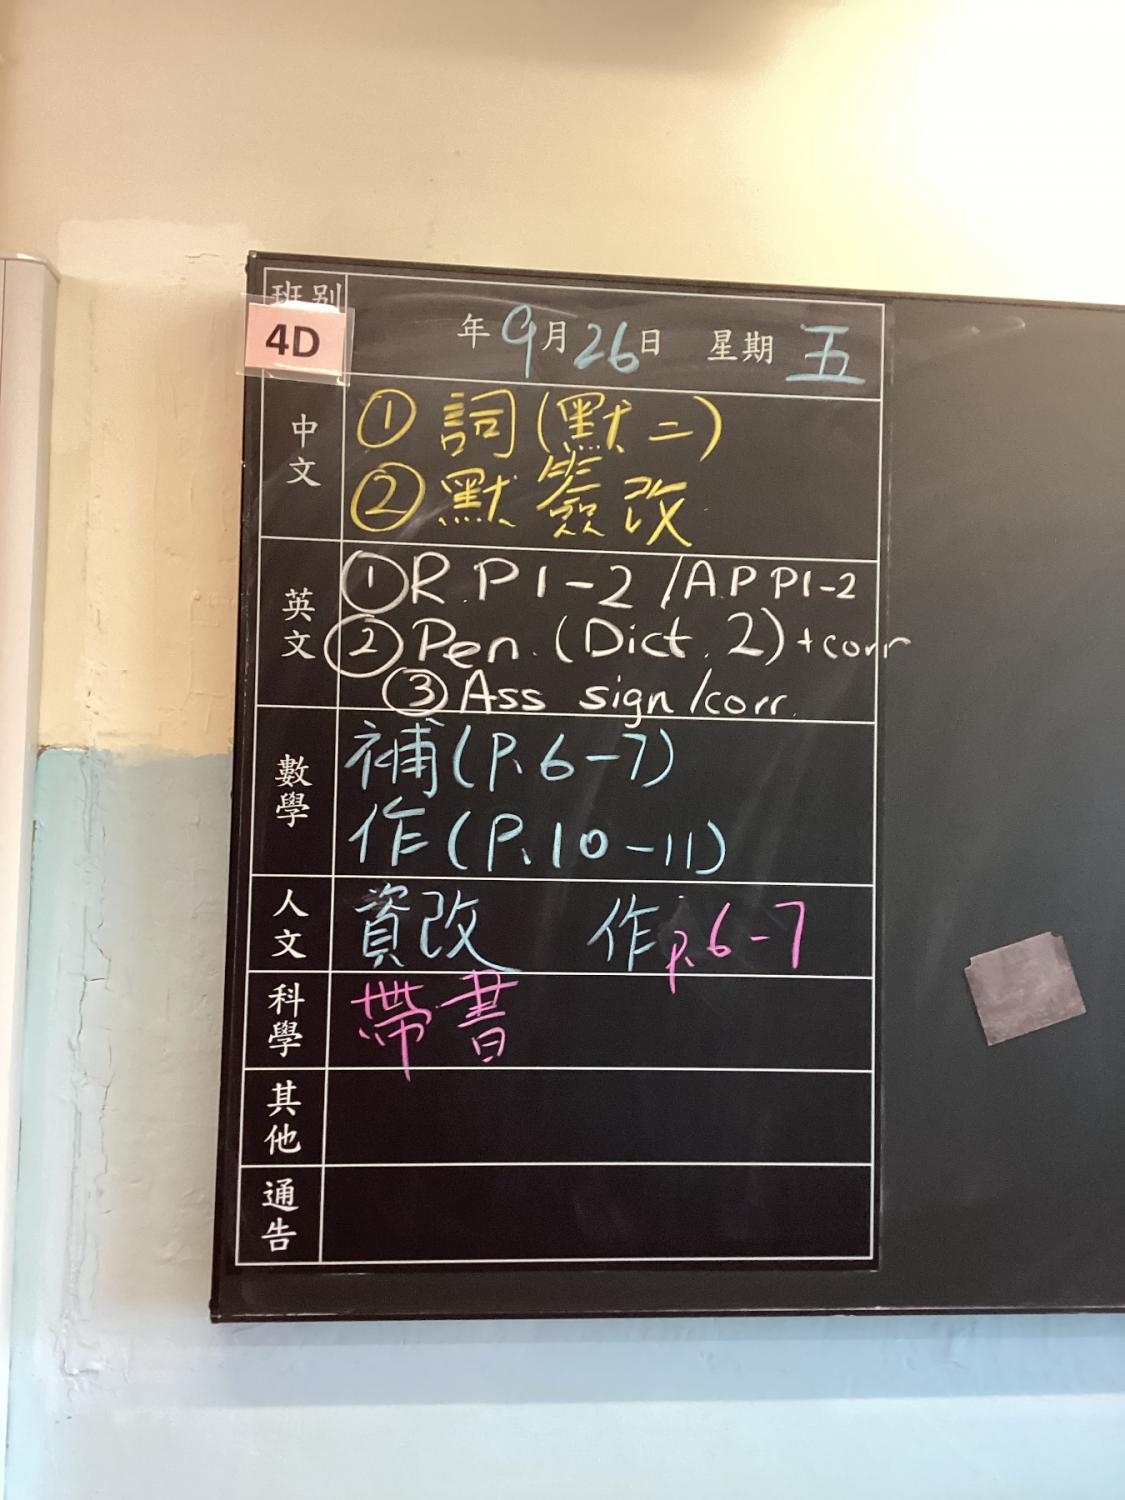 班別
4D
年9月26日 星期五
中文
① 詞(默二)
② 默簽改
英文
① R P1-2 /AP P1-2
② Pen. (Dict. 2) + corr
③ Ass sign/corr.
數學
補(P.6-7)
作(P.10-11)
人文
資改 作p.6-7
科學
帶書
其他
通告